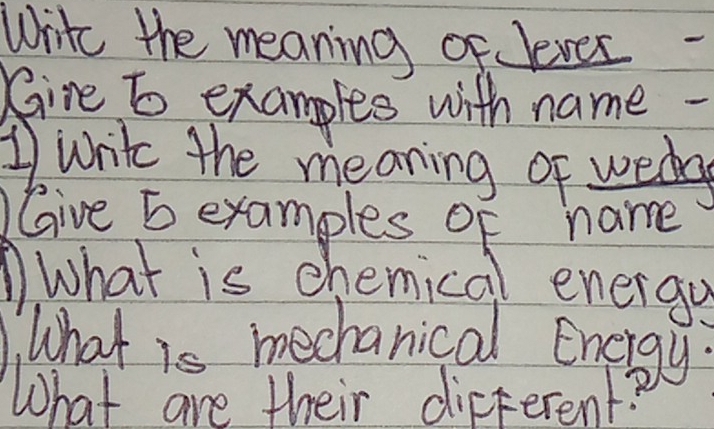 Write the meaning of lever -
Give 5 examples with name -
1) Write the meaning of wedg
) Give 5 examples of name
1) What is chemical energy
), What is mechanical Energy.
What are their different?